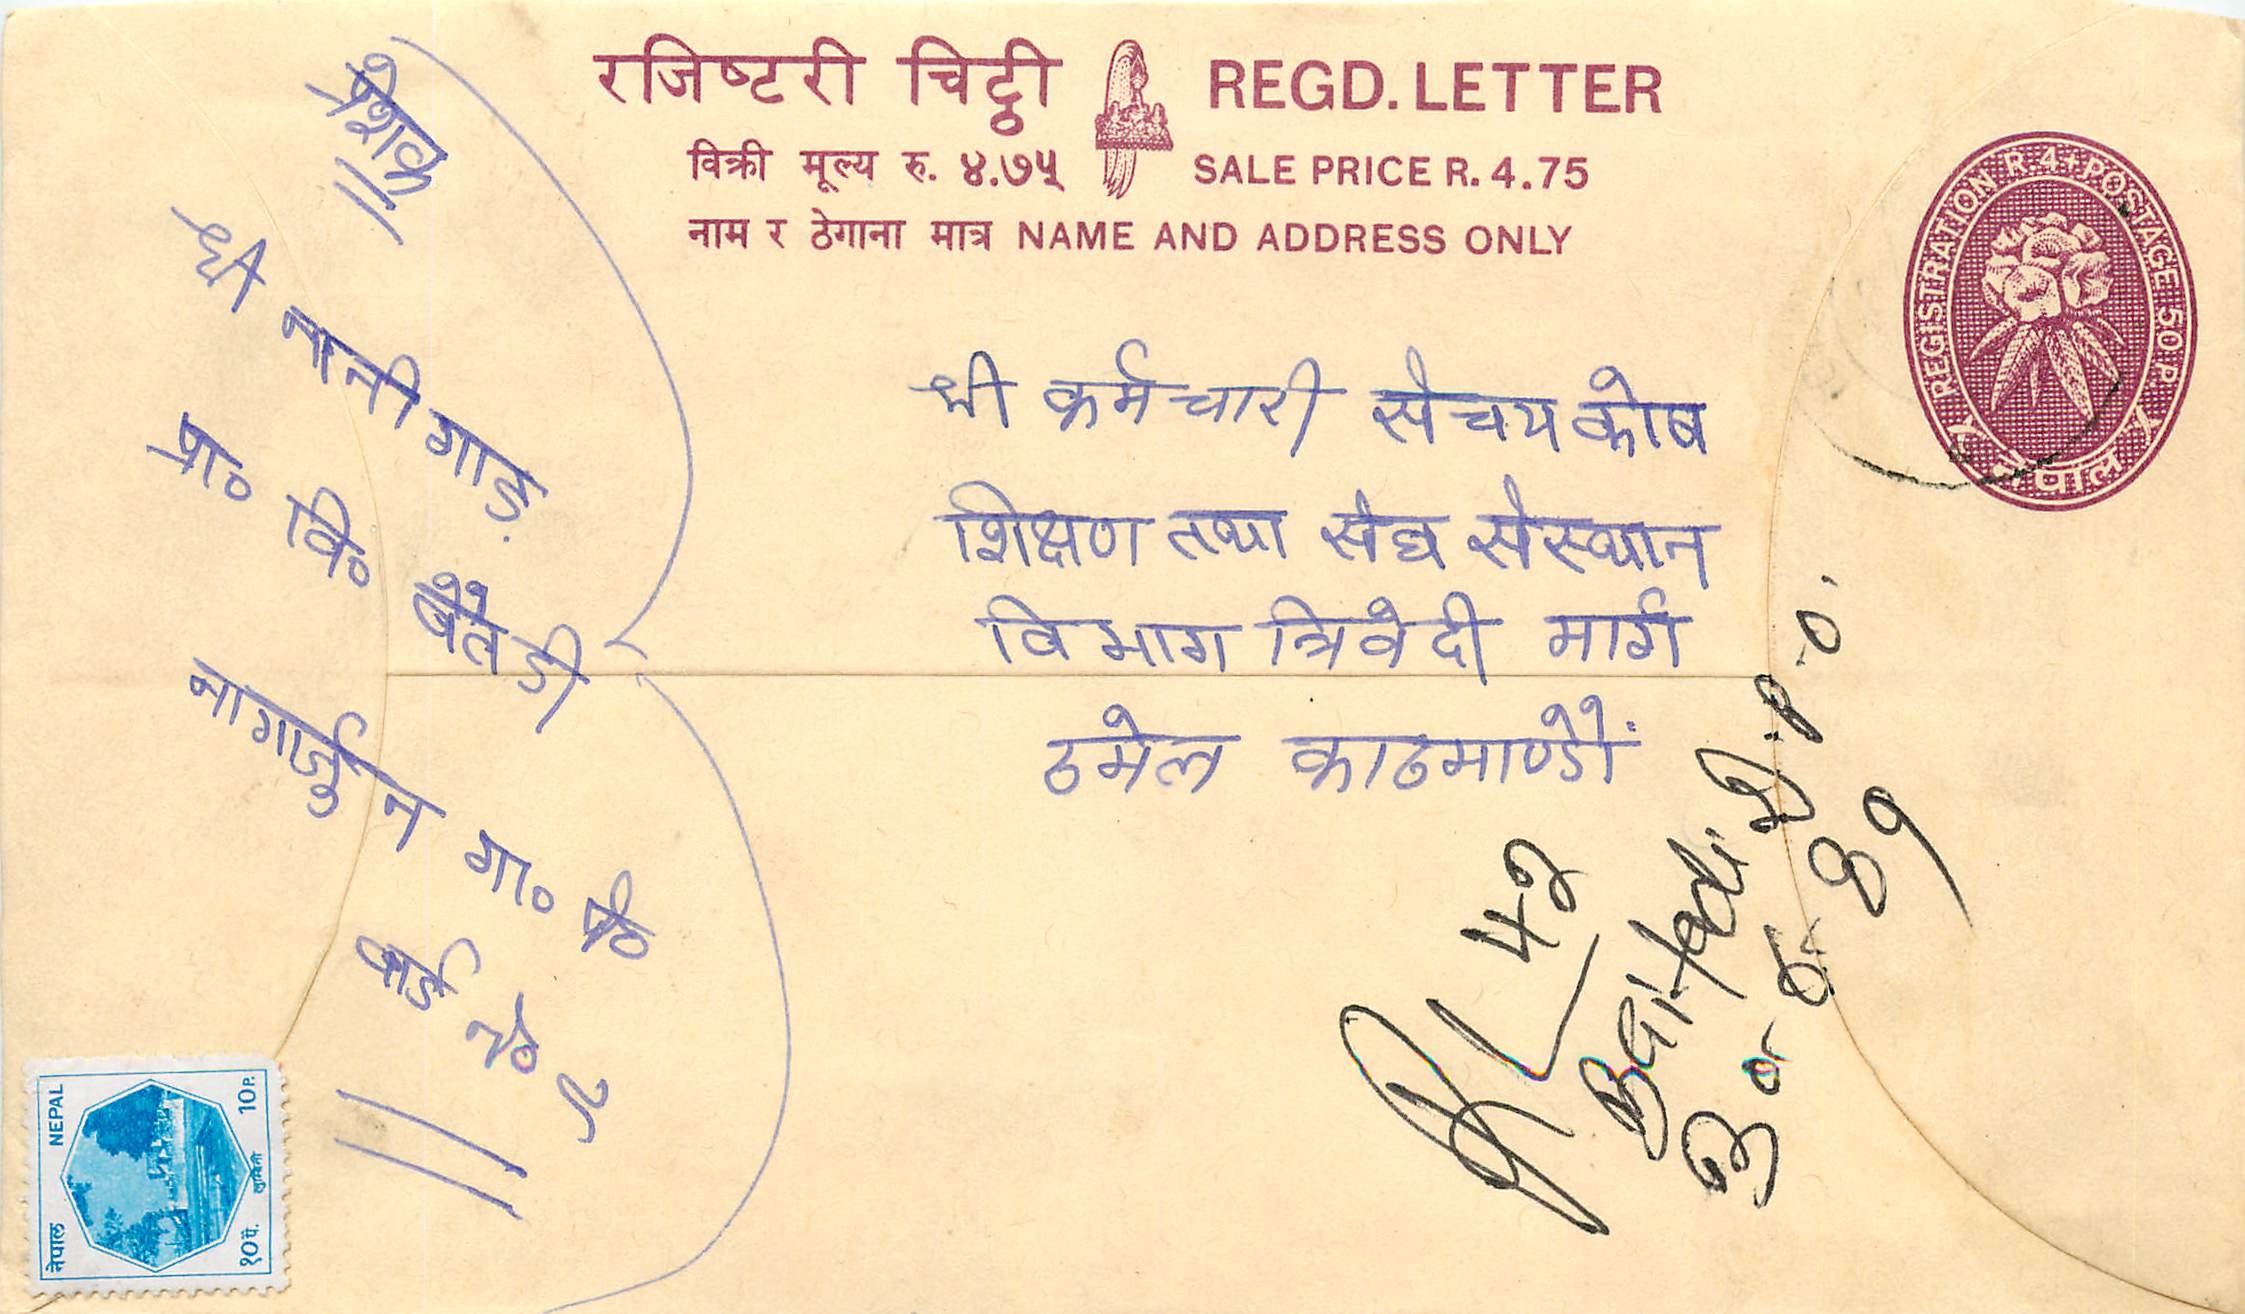 रजिष्टरी चिट्ठी REGD. LETTER
विक्री मूल्य रु. ४.७५ SALE PRICE R. 4.75
नाम र ठेगाना मात्र NAME AND ADDRESS ONLY
REGISTRATION R.4+POSTAGE 50 P.
नेपाल
श्री कर्मचारी संचय कोष
शिक्षण तथा संघ संस्थान
विभाग त्रिवेदी मार्ग
ठमेल काठमाण्डौं
प्रेशक
श्री नानीगाड़
प्रा० वि० बैतडी
नागार्जुन गा० पं०
वार्ड नं० ८
RL 42
Baitadi D.P.O.
नेपाल NEPAL
१० पै. 10 P.
लुम्बिनी